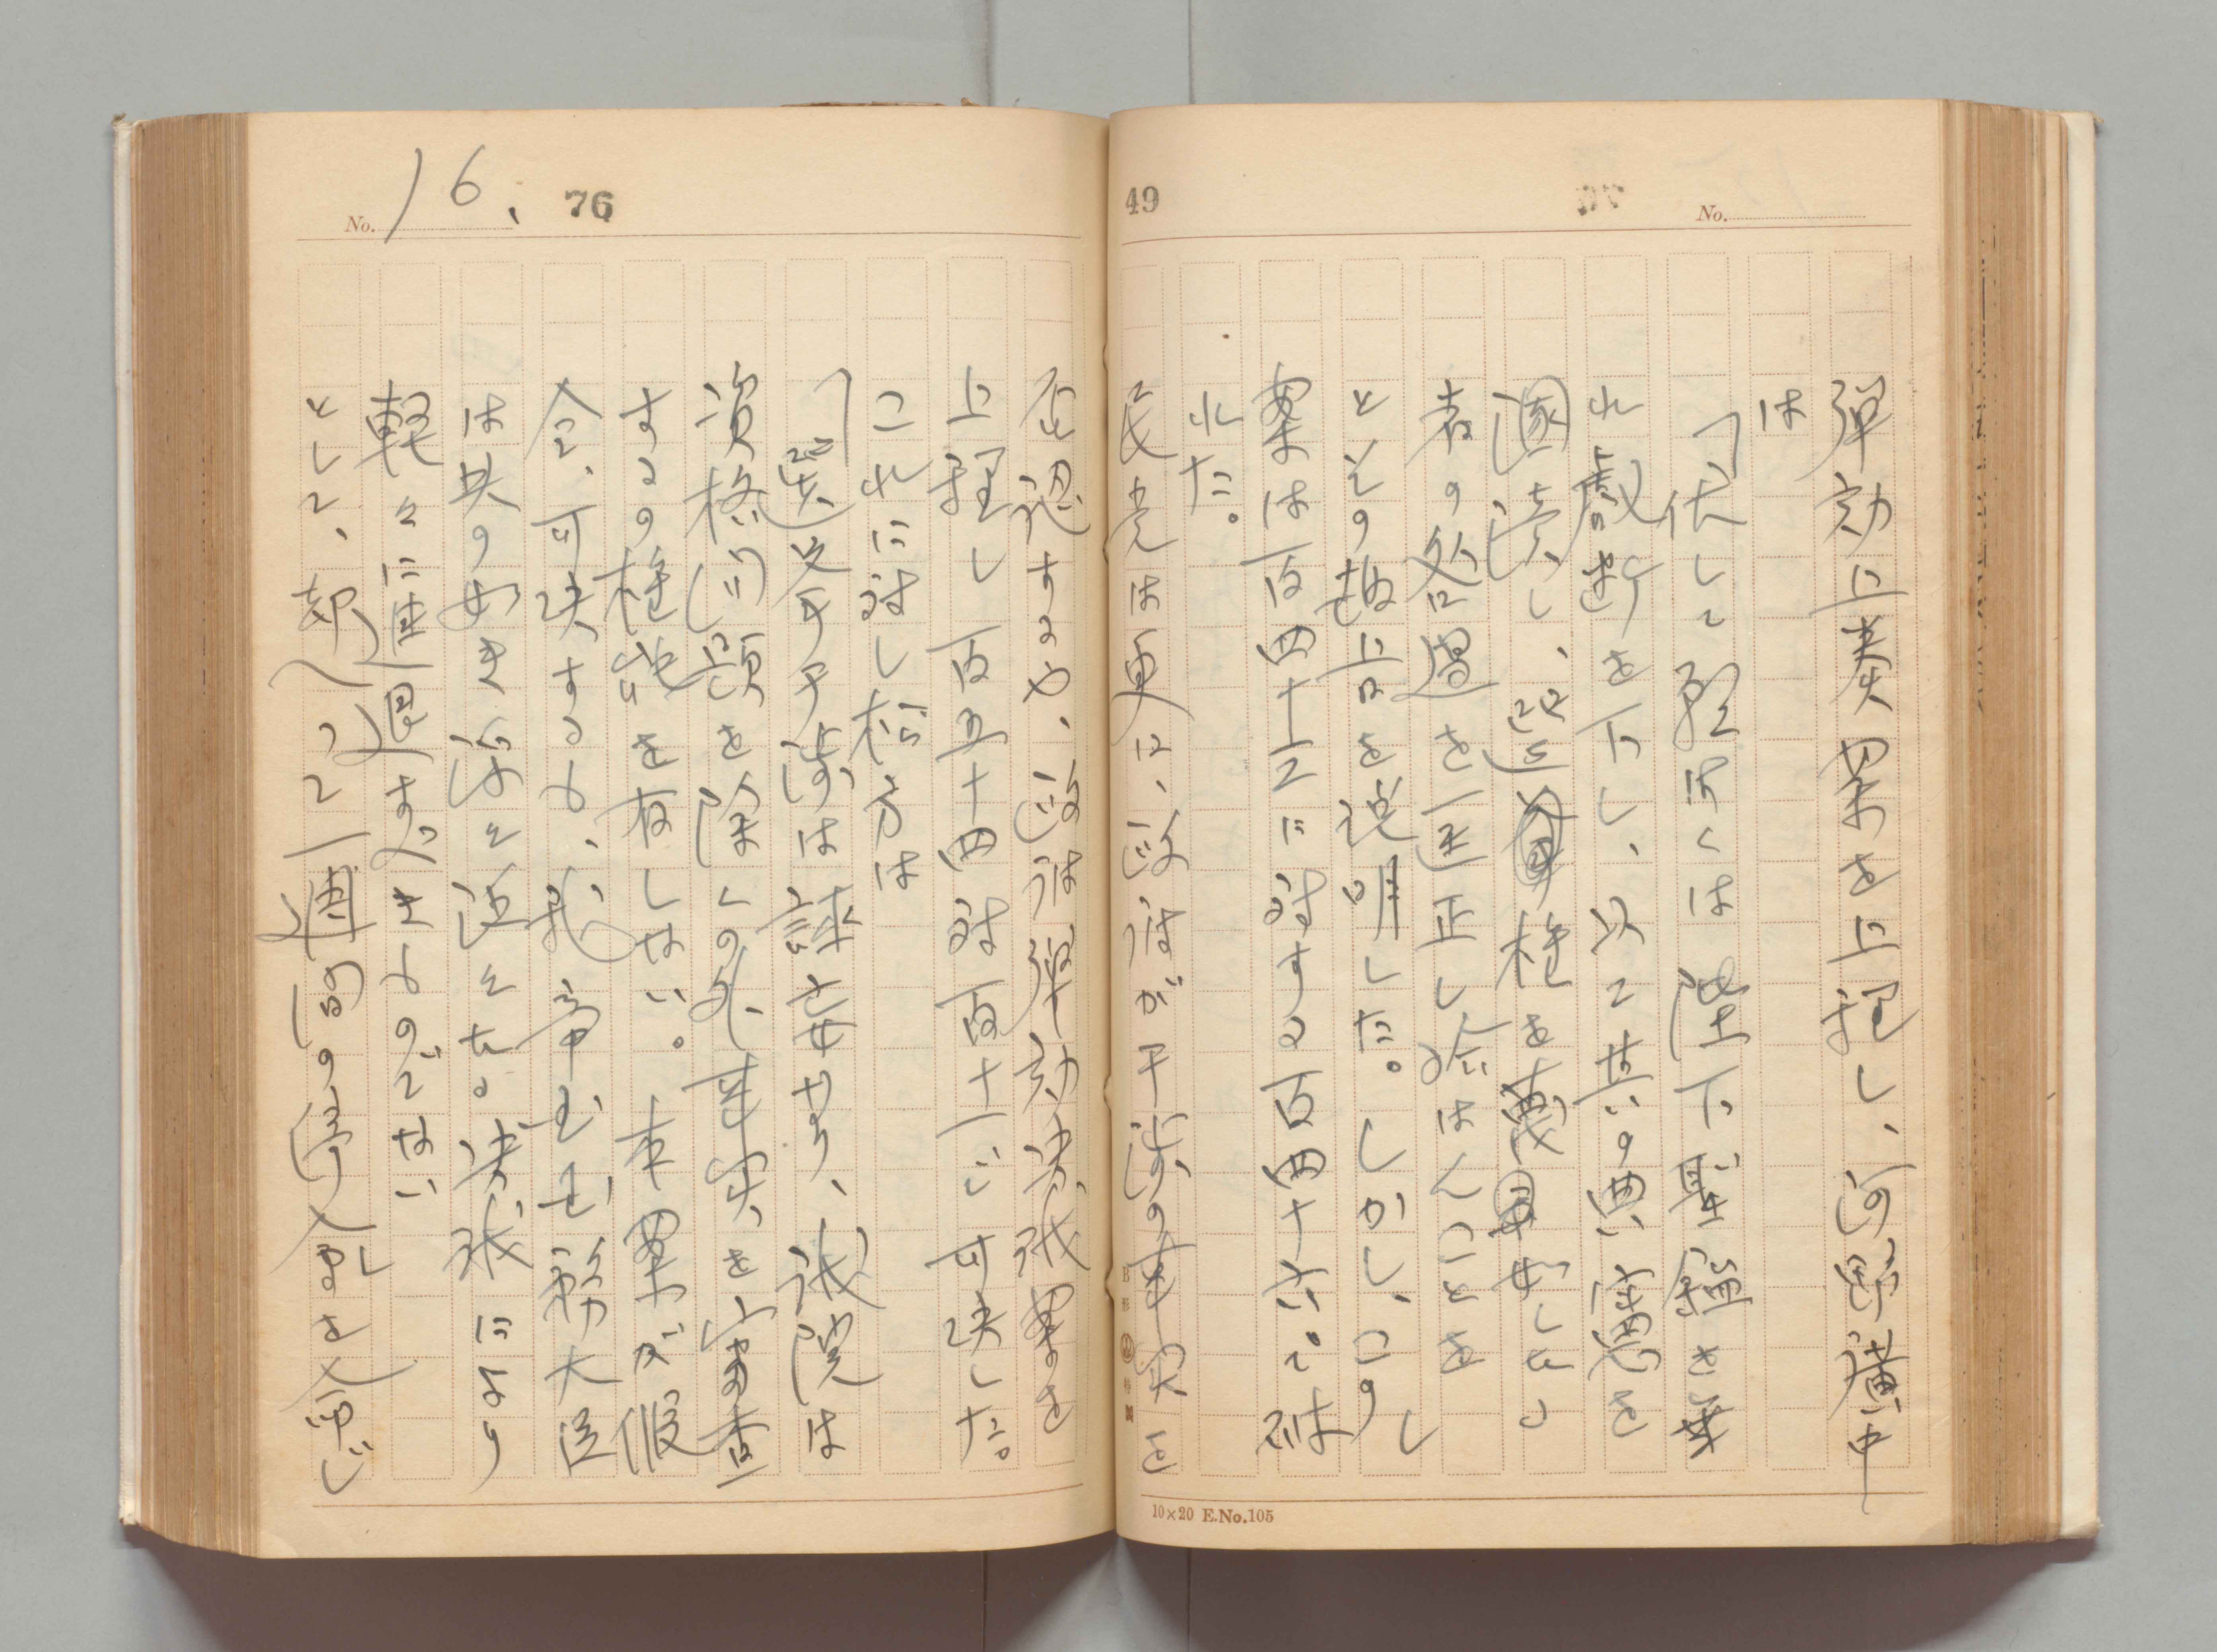 49
No.
弾劾上奏案を上程し、河野廣中
は
「伏して願くは陛下聖鑑を垂
れ厳断を下し、以て其の典憲を
瀆し、選擧権を蔑
者の処置を匡正し給はんことを」
とその趣旨を説明した。しかし、この
案は百四十三に対する百四十六で破
れた。
民党は更に、政府が干渉の事実を
10×20 E.No.105
No. 16. 76
否認するや、政府弾劾決議案を
上程し百五十四対百十一で可決した。
これに対し松方は
「選挙干渉は誣妄なり、議院は
資格訴願を除くの外事実を審査
するの権能を有しない。本案が假
令、可決するも、我帝国国務大臣
は其の如き
決議により
軽々に進退すべきものでない」
として、一週間の停会を命じ